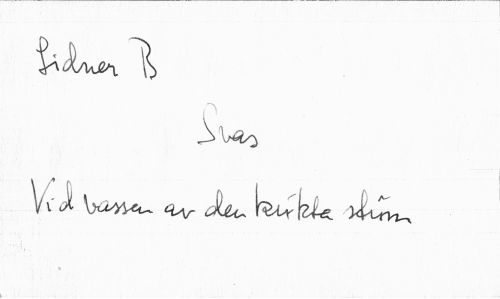 Lidner B
Svas
Vid vassen av den krökta ström